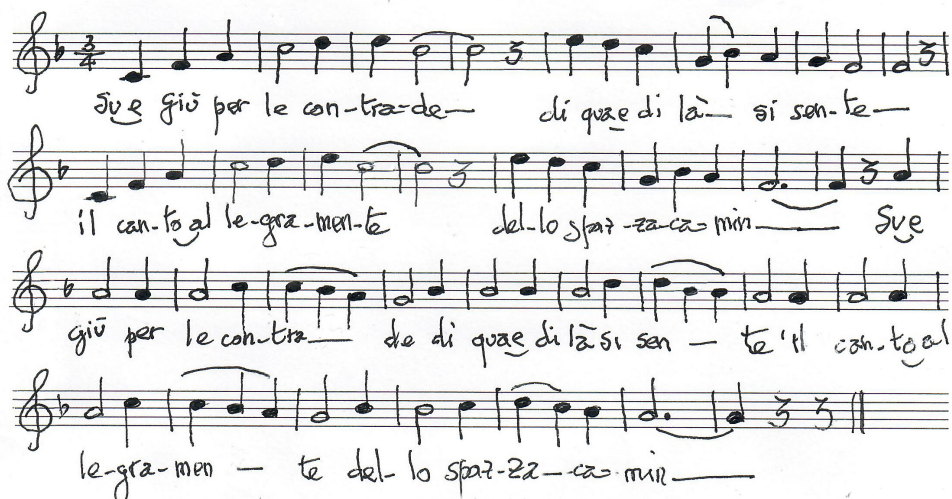 3/4
Su e giù per le con-tra-de— di qua e di là— si sen-te—
il can-to al le-gra-men-te del-lo spaz-za-ca-min— Su e
giù per le con-tra— de di qua e di là si sen — te 'il can-to al
le-gra-men — te del-lo spaz-za—ca-min—